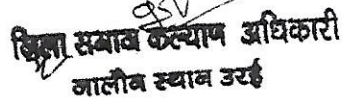 जिला समाज कल्याण अधिकारी
जालौन स्थान उरई